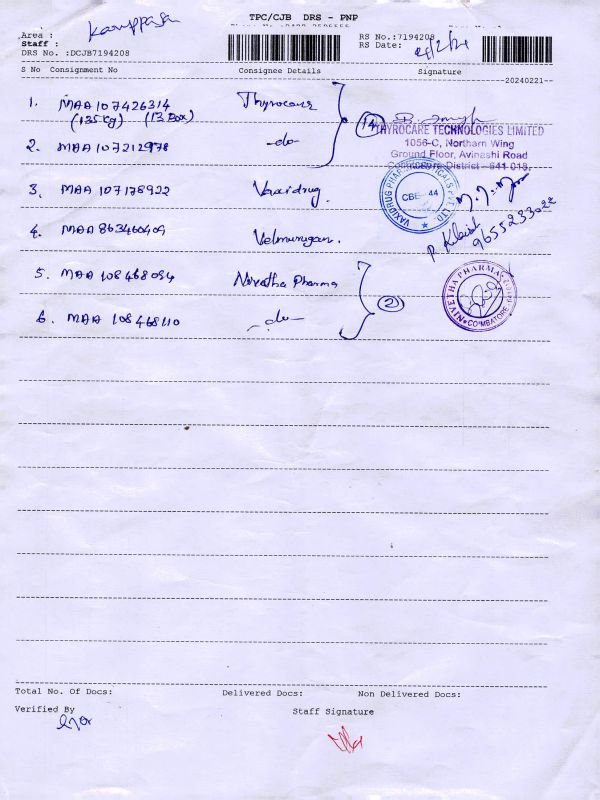 TPC/CJB DRS - PNP
Karuppasa
Area :
Staff :
DRS No. :DCJB7194208
RS No.:7194208
RS Date:
S No Consignment No Consignee Details Signature
20240221
1. MAA 107426314 Thyrocare
(135 kg) (13 Box)
14
THYROCARE TECHNOLOGIES LIMITED
1056-C, Northern Wing
Ground Floor, Avinashi Road
Coimbatore District - 641 018.
2. MAA 107212978 -do-
3. MAA 107178922 Vaxidrug.
VAXIDRUG PHARMACEUTICALS PVT LTD.
CBE - 44
9655233022
4. MAA 863460409 Velmurugan.
5. MAA 108468094 Nivetha Pharma
2
NIVETHA PHARMA
COIMBATORE
6. MAA 108468110 -do-
Total No. Of Docs: Delivered Docs: Non Delivered Docs:
Verified By Staff Signature